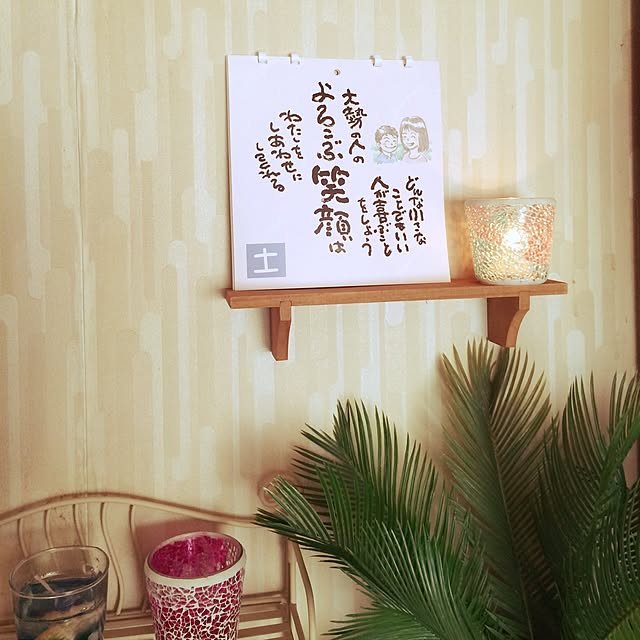 どんな小さな
ことでもいい
人が喜ぶこと
をしよう
大勢の人の
よろこぶ笑顔は
わたしを
しあわせに
してくれる
土